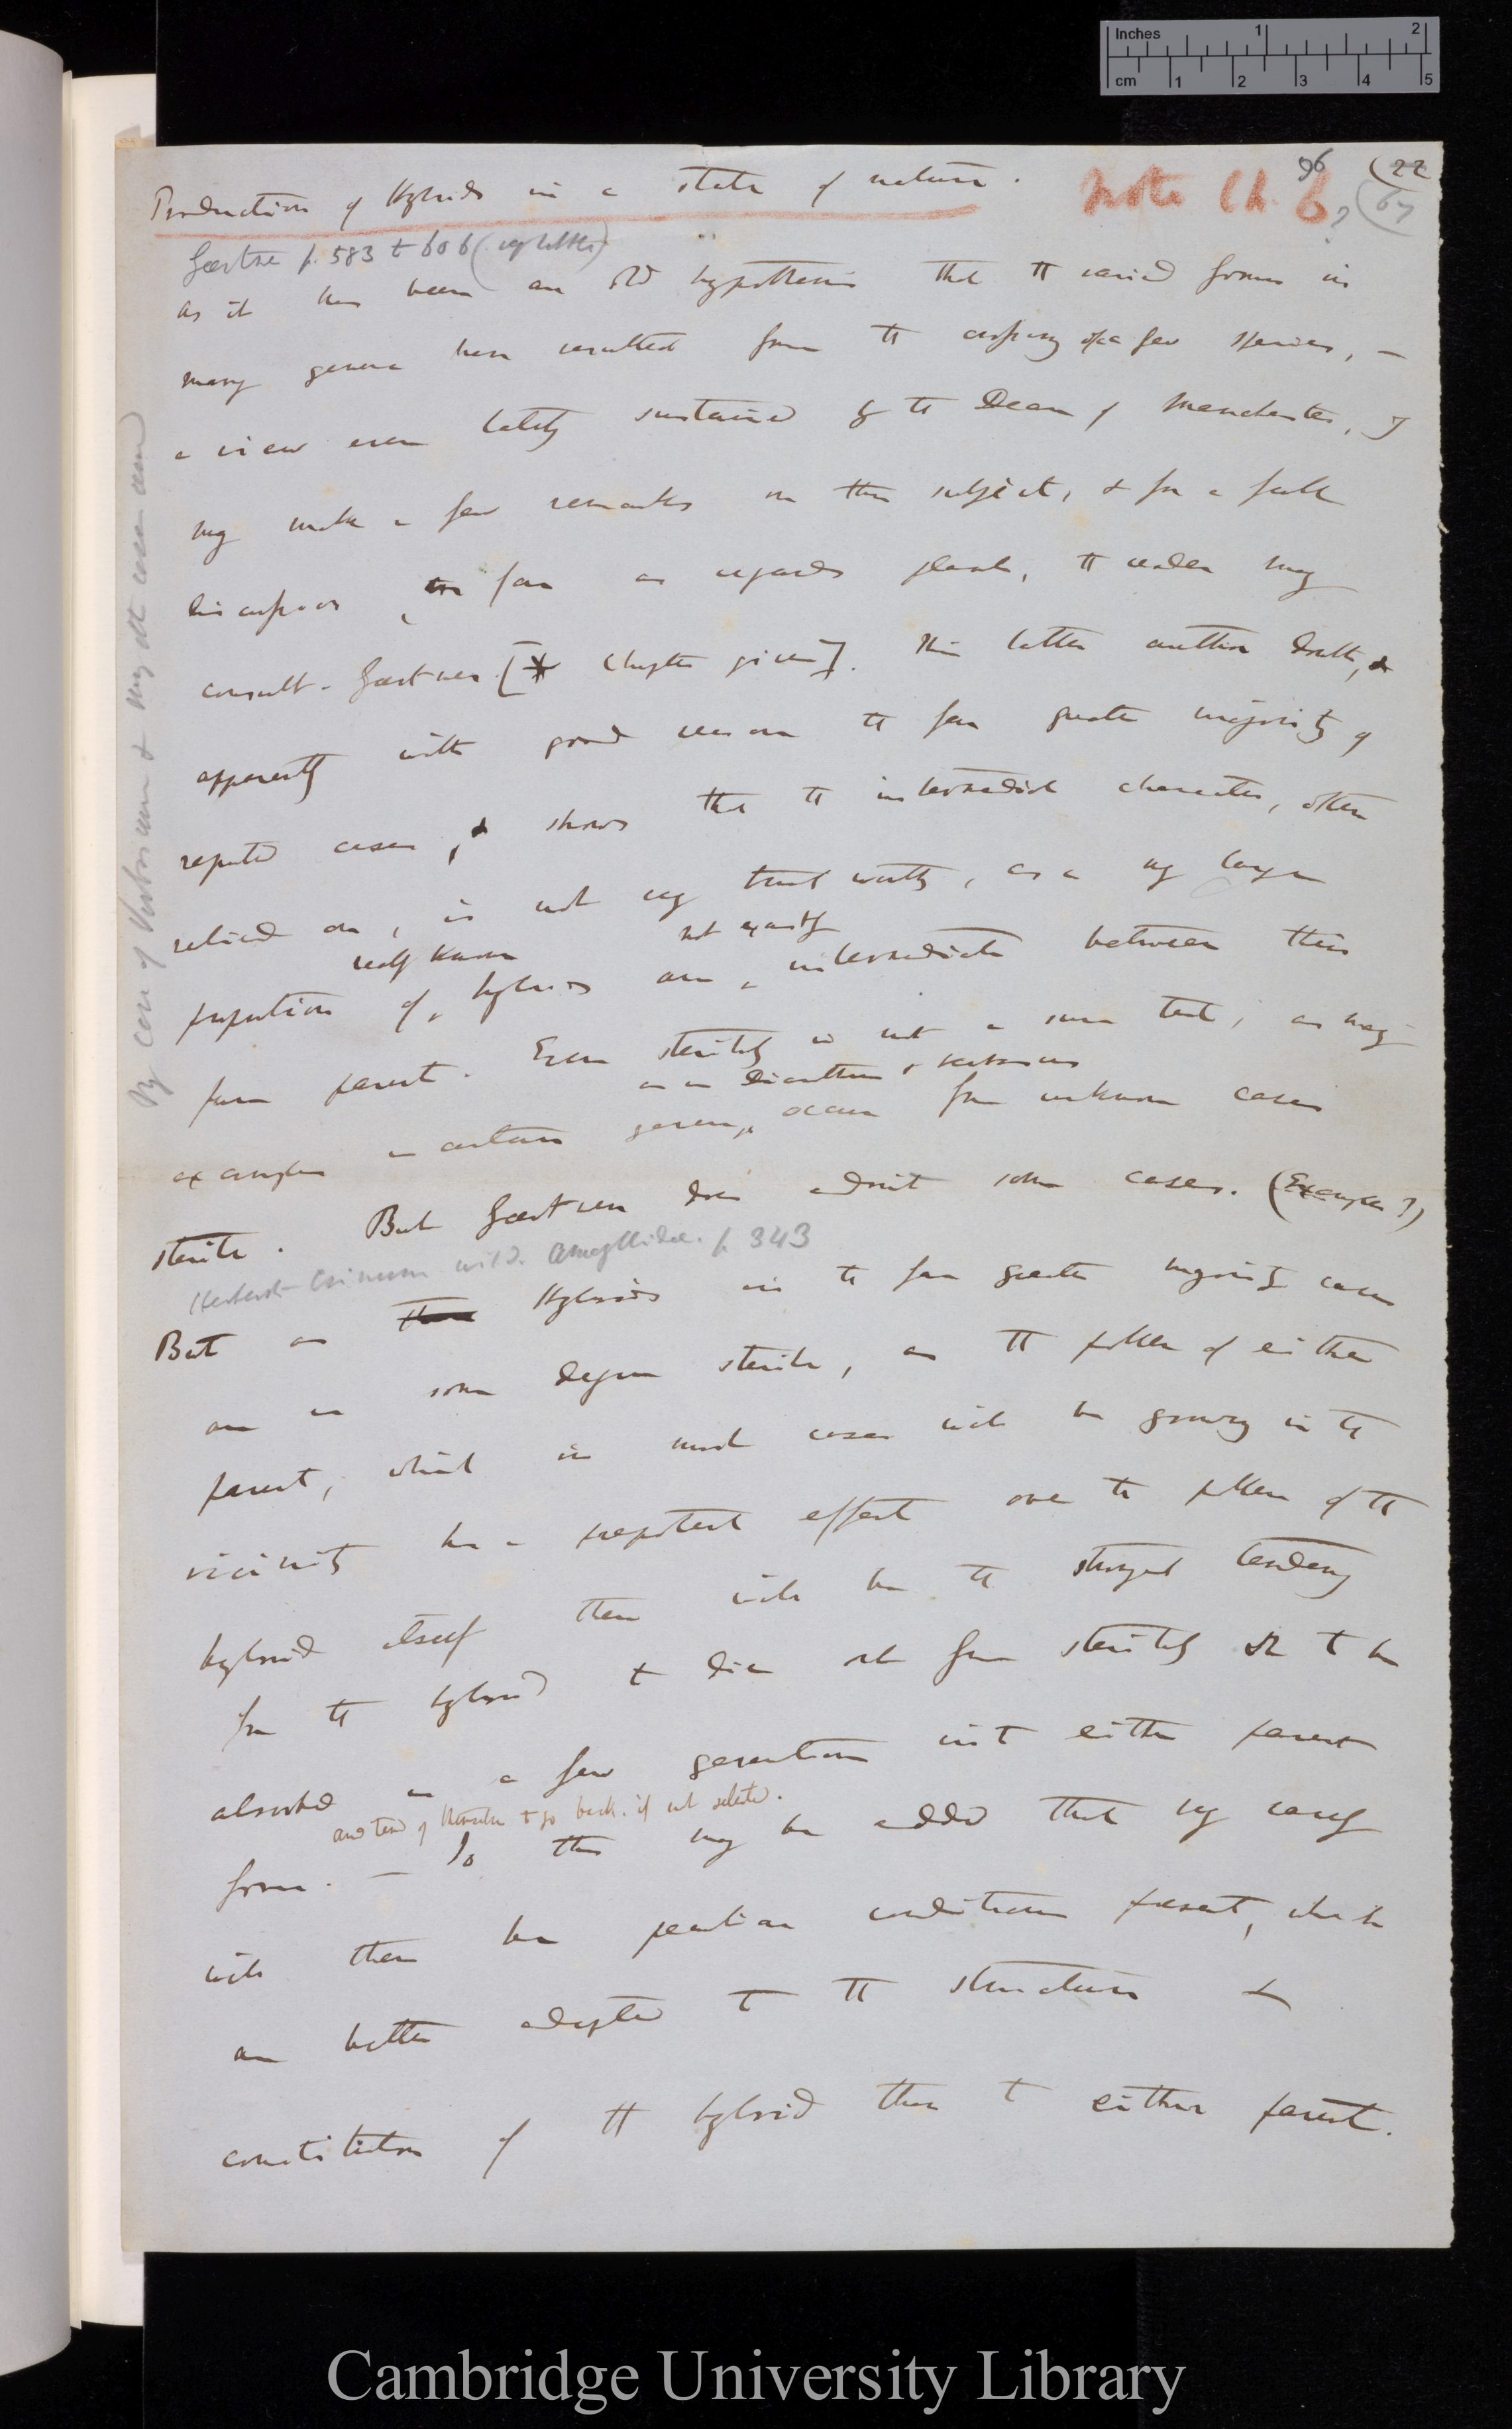 Inches 1 2
cm 1 2 3 4 5
96 (22
Production of Hybrids in a state of nature. Note Ch. 6? (67
Gærtner p. 583 to 606
As it has been an old hypothesis that the varied forms in
many genera have resulted from the crossing of a few species, —
a view even lately sustained by the Dean of Manchester, I
may make a few remarks on this subject, & for a full
discussion, as far as regards plants, the reader may
consult Gærtner [* Chapter given]. This latter author doubts, &
apparently with good reason the far greater majority of
reputed cases, & shows that the intermediate character, often
relied on, is not very trust worthy, as a very large
really known not exactly
proportion of, hybrids are, intermediate between their
pure parent. Even sterility is not a sure test, as many
as in Dianthus & Verbascum
examples in certain genera, occur from unknown causes
sterile. But Gærtner does admit some cases. (Examples?)
Herbert Crinum wild. Amaryllidae. p. 343
But as Hybrids in the far greater majority cases
are in some degree sterile, as the pollen of either
parent, which in most cases will be growing in the
vicinity has a prepotent effect over the pollen of the
hybrid itself there will be the strongest tendency
for the hybrid to die out from sterility or to be
absorbed in a few generations into either parent
and tend of themselves to go back. if not selected.
form. — To this may be added that very rarely
will there be peculiar conditions present, which
are better adapted to the structure &
constitution of the hybrid than to either parent.
My case of Verbascum &
Cambridge University Library